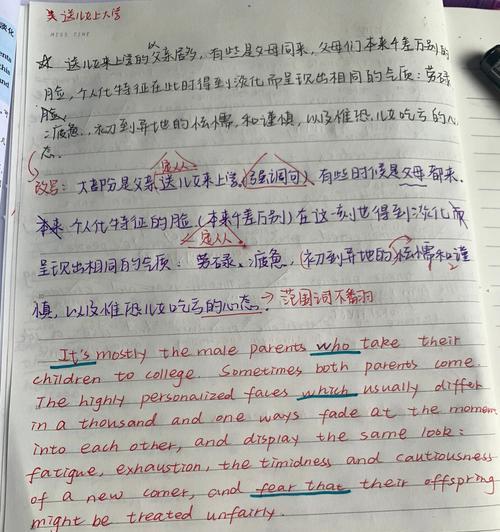 送儿女上大学
MISS TIME
☆ 送儿女来上学的以父亲居多，有些是父母同来，父母们本来千差万别的
脸，个人化特征在此时得到淡化而呈现出相同的气质：劳碌
疲惫、初到异地的怯懦、和谨慎，以及惟恐儿女吃亏的心
态。
定从
改写：大部份是父亲送儿女来上学（强调句）有些时候是父母都来．
本来个人化特征的脸（本来千差万别）在这一刻也得到淡化而
定从
呈现出相同的气质：劳碌、疲惫，（初到异地的怯懦和谨
慎，以及惟恐儿女吃亏的心态．→范围词不翻
It's mostly the male parents who take their
children to college. Sometimes both parents come.
The highly personalized faces which usually differ
in a thousand and one ways fade at the momen
into each other, and display the same look:
fatigue, exhaustion, the timidness and cautiousness
of a new comer, and fear that their offspring
might be treated unfairly.